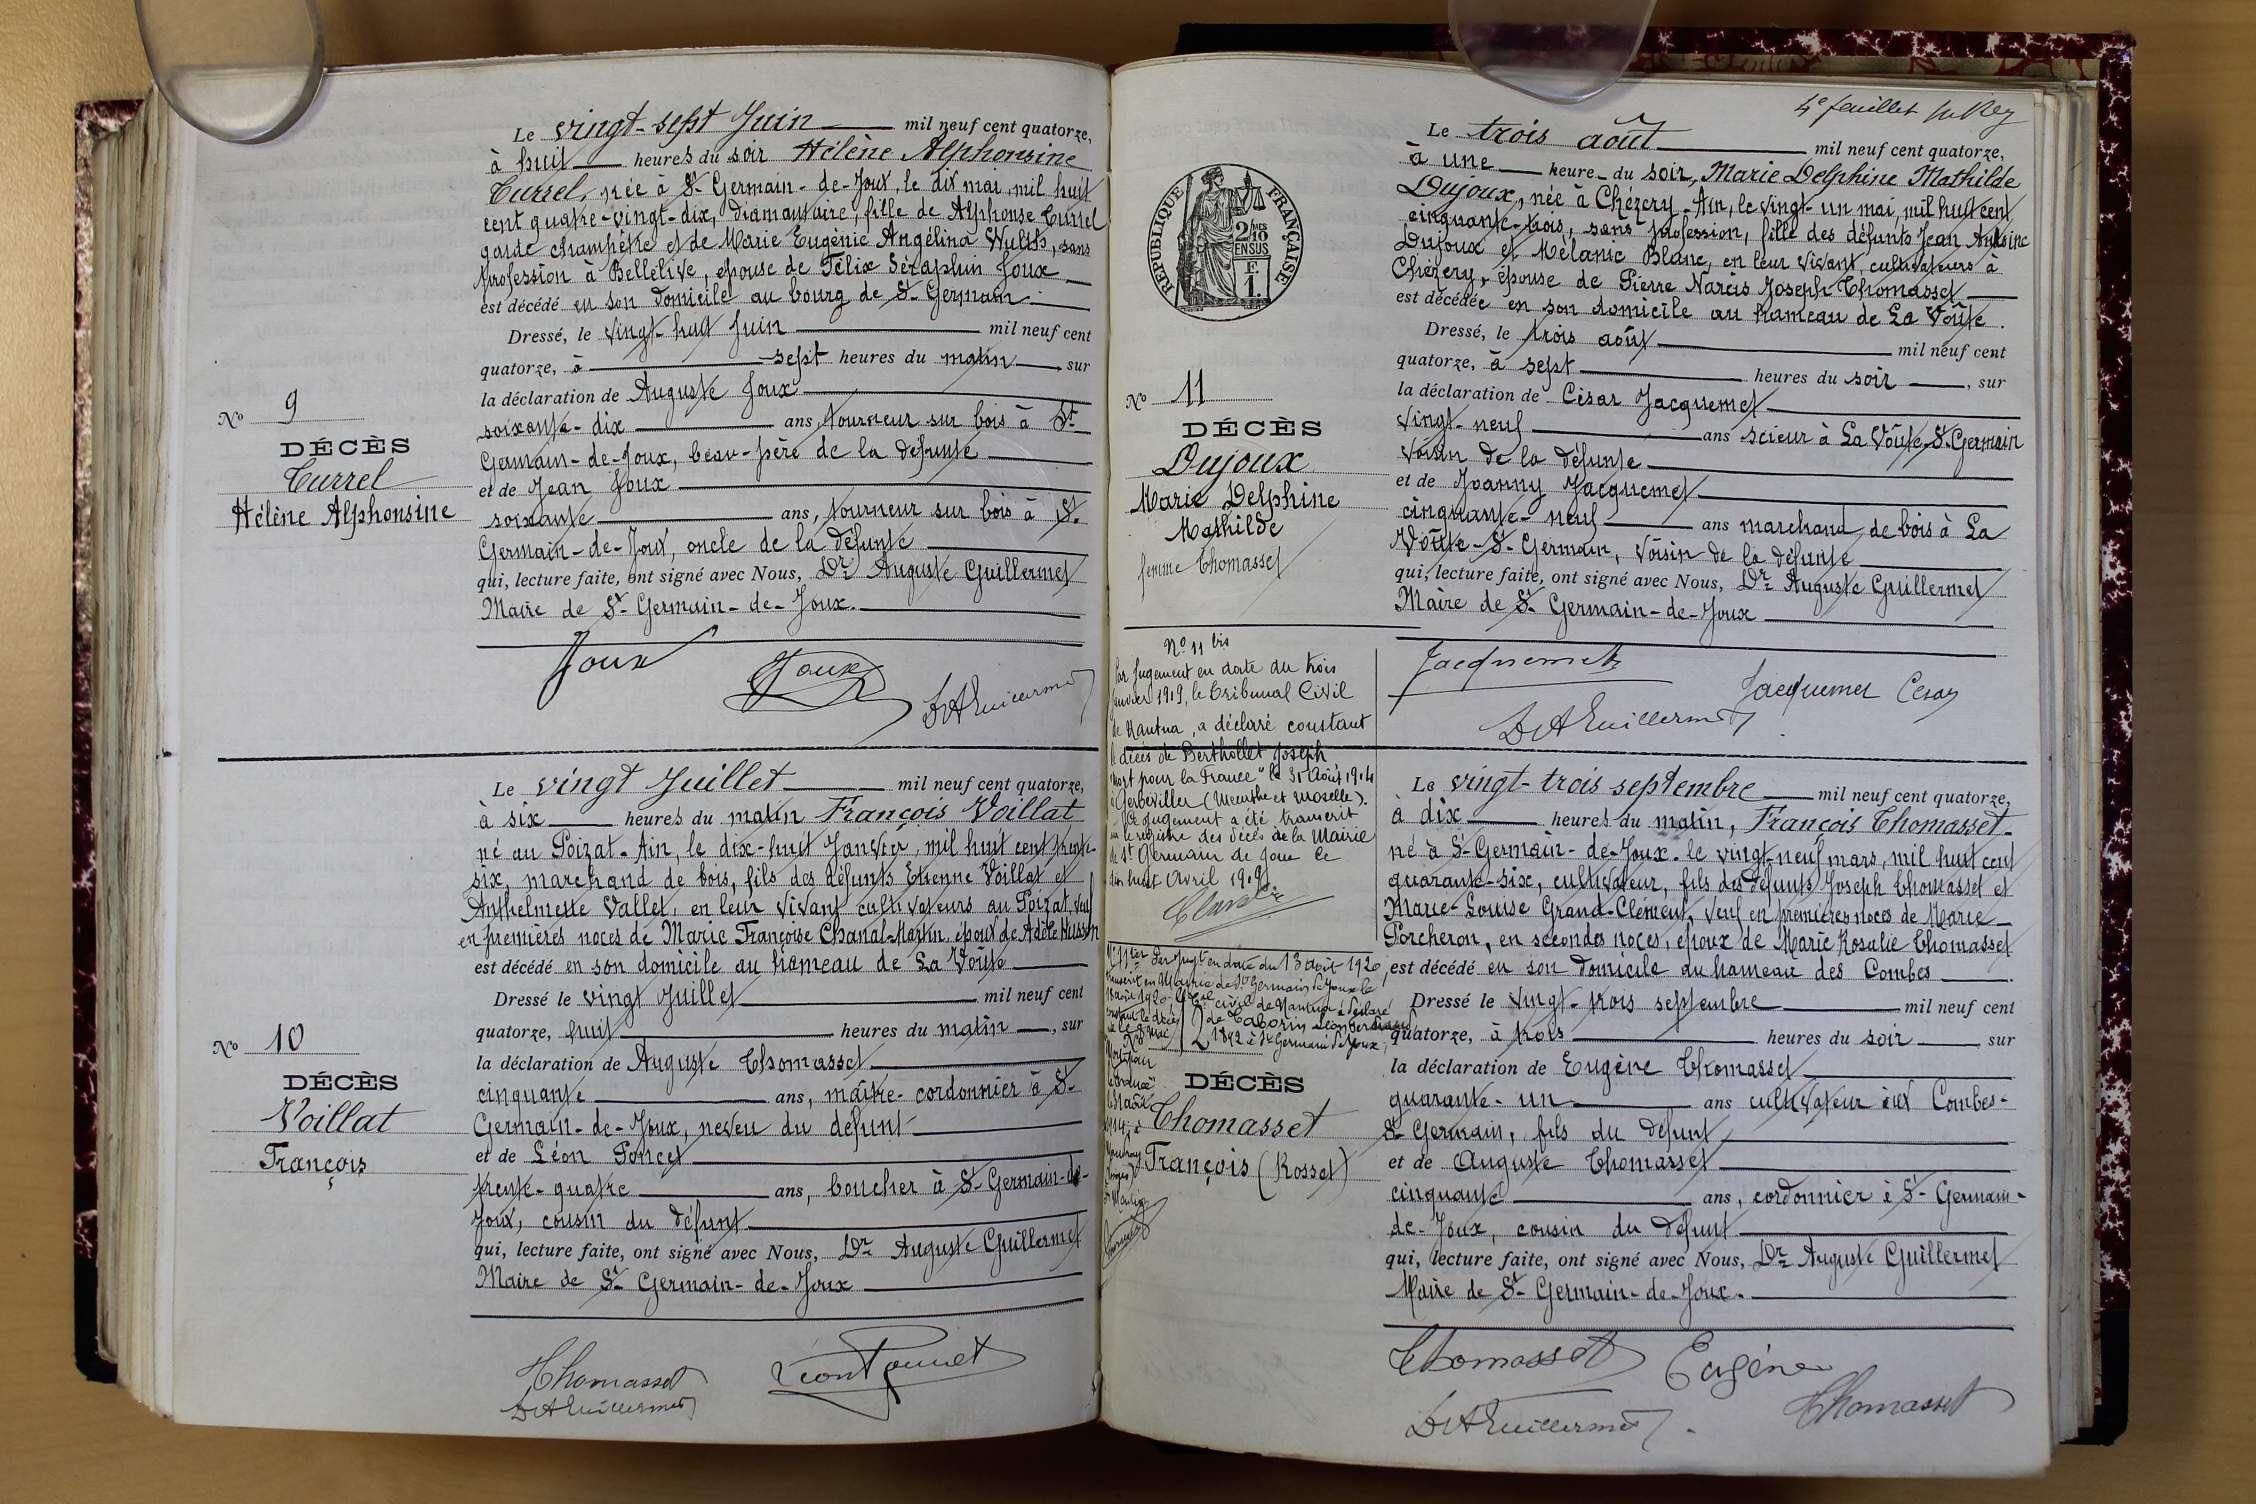 Le vingt-sept Juin mil neuf cent quatorze,
à huit heures du soir Hélène Alphonsine
Currel, née à St Germain-de-Joux, le dix mai, mil huit
cent quatre-vingt-dix, diamantaire, fille de Alphonse Currel
garde champêtre et de Marie Eugénie Angélina, sans
profession à Bellerive, épouse de Félix Séraphin Joux
est décédé en son domicile au bourg de St Germain.
Dressé, le vingt-huit Juin mil neuf cent
quatorze, à sept heures du matin, sur
la déclaration de Auguste Joux
soixante-dix ans, tourneur sur bois à St
Germain-de-Joux, beau-père de la défunte
et de Jean Joux
soixante ans, tourneur sur bois à St
Germain-de-Joux, oncle de la défunte
qui, lecture faite, ont signé avec Nous, Dr Auguste Guillermet
Maire de St Germain-de-Joux.
No 9
DÉCÈS
Currel
Hélène Alphonsine
Joux
Joux
Dr A Guillermet
Le vingt Juillet mil neuf cent quatorze,
à six heures du matin François Voillat
né au Poizat-Ain, le dix-huit Janvier, mil huit cent trente-
six, marchand de bois, fils des défunts Etienne Voillat et
Anthelmette Vallet, en leur vivant cultivateurs au Poizat, veuf
en premières noces de Marie Françoise Chanal-Martin, époux de Adèle Husson
est décédé en son domicile au hameau de La Voûte
Dressé le vingt Juillet mil neuf cent
quatorze, huit heures du matin, sur
la déclaration de Auguste Thomasset
cinquante ans, maître-cordonnier à St
Germain-de-Joux, neveu du défunt
et de Léon Poncet
trente-quatre ans, boucher à St Germain-de-
Joux, cousin du défunt
qui, lecture faite, ont signé avec Nous, Dr Auguste Guillermet
Maire de St Germain-de-Joux
No 10
DÉCÈS
Voillat
François
Thomasset
Léon Poncet
Dr A Guillermet
4e feuillet
RÉPUBLIQUE FRANÇAISE
2/10 MES
EN SUS
F.
1.
Le trois août mil neuf cent quatorze,
à une heure du soir, Marie Delphine Mathilde
Dujoux, née à Chézery-Ain, le vingt-un mai, mil huit cent
cinquante-trois, sans profession, fille des défunts Jean Antoine
Dujoux et Mélanie Blanc, en leur vivant cultivateurs à
Chézery, épouse de Pierre Narcis Joseph Thomasset
est décédée en son domicile au hameau de La Voûte.
Dressé, le trois août mil neuf cent
quatorze, à sept heures du soir, sur
la déclaration de César Jacquemet
vingt-neuf ans scieur à La Voûte-St-Germain
voisin de la défunte
et de Joanny Jacquemet
cinquante-neuf ans marchand de bois à La
Voûte-St-Germain, voisin de la défunte
qui, lecture faite, ont signé avec Nous, Dr Auguste Guillermet
Maire de St Germain-de-Joux
No 11
DÉCÈS
Dujoux
Marie Delphine
Mathilde
femme Thomasset
Jacquemet
Jacquemet César
Dr A Guillermet
No 11 bis
Par jugement en date du trois
Janvier 1919, le Tribunal Civil
de Nantua, a déclaré constant
le décès de Berthollet Joseph
"mort pour la France" le 31 Août 1914
à Gerbéviller (Meurthe et Moselle).
Ce jugement a été transcrit
sur le registre des décès de la Mairie
de St Germain de Joux le
dix huit Avril 1919.
No 11 ter Par jugt en date du 13 août 1920
transcrit en Mairie de St Germain de Joux le
août 1920 civil de Nantua a déclaré
constant le décès de Taborin Léon Ferdinand
né le 9 mai 1892 à St Germain de Joux
No
Mort pour
la France
le 31 août
1914, à
Le vingt-trois septembre mil neuf cent quatorze,
à dix heures du matin, François Thomasset
né à St-Germain-de-Joux. le vingt-neuf mars, mil huit cent
quarante-six, cultivateur, fils des défunts Joseph Thomasset et
Marie-Louise Grand-Clément, veuf en premières noces de Marie
Porcheron, en secondes noces, époux de Marie Rosalie Thomasset
est décédé en son domicile au hameau des Combes
Dressé le vingt-trois septembre mil neuf cent
quatorze, à trois heures du soir sur
la déclaration de Eugène Thomasset
quarante-un ans cultivateur aux Combes-
St Germain, fils du défunt
et de Auguste Thomasset
cinquante ans, cordonnier à St-Germain-
de-Joux, cousin du défunt
qui, lecture faite, ont signé avec Nous, Dr Auguste Guillermet
Maire de St-Germain-de-Joux.
DÉCÈS
Thomasset
François (Rosset)
Thomasset Eugène
Dr A Guillermet
Thomasset